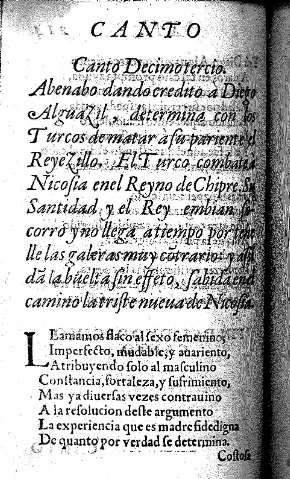 CANTO
Canto Decimotercio.
Abenabo dando credito a Diego
Alguazil, determina con los
Turcos de matar à su pariente el
Reyezillo. El Turco combate a
Nicosia en el Reyno de Chipre. Su
Santidad y el Rey embian so
corro y no llega a tiempo por ser
lle las galeras muy contrario: y assi
dã la buelta sin effeto, sabida en el
camino la triste nueua de Nicosia.
LLamamos flaco al sexo femenino,
Imperfecto, mudable, y auariento,
Atribuyendo solo al masculino
Constancia, fortaleza, y sufrimiento,
Mas ya diuersas vezes contrauino
A la resolucion deste argumento
La experiencia que es madre fidedigna
De quanto por verdad se determina.
Costosa